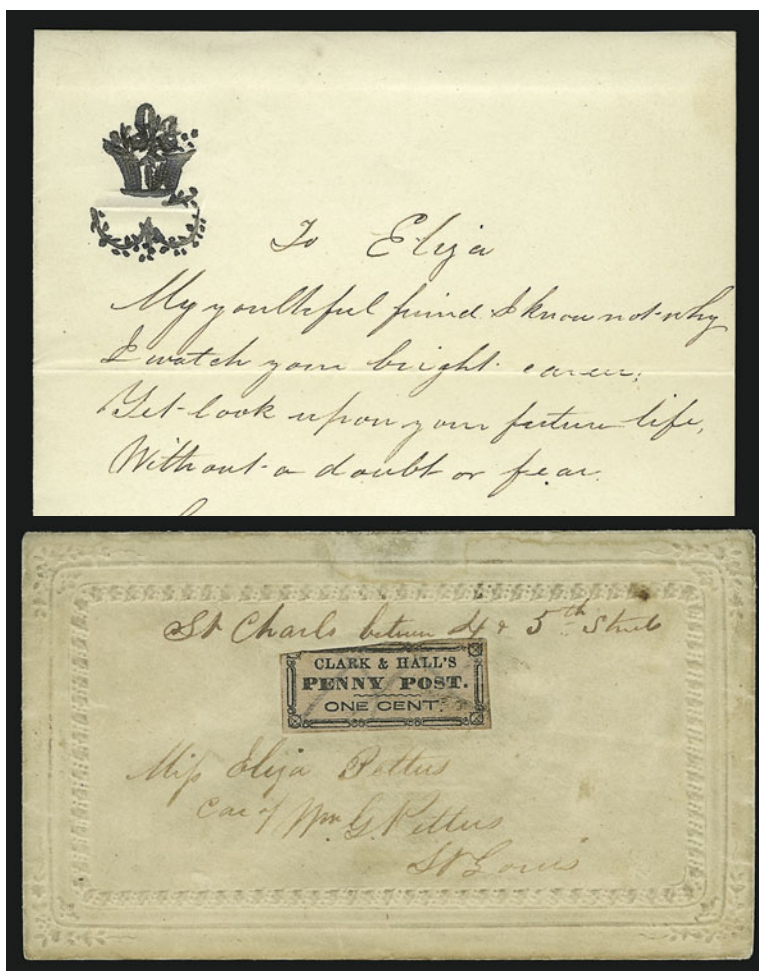 To Eliza
My youthful friend I know not why
I watch your bright career,
Yet look upon your future life,
Without a doubt or fear.
St Charls between 4 & 5th Streets
CLARK & HALL'S
PENNY POST.
ONE CENT.
Miss Eliza Pettus
Car of Wm. G. Pettus
St Louis